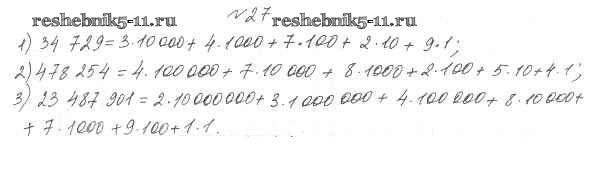 №27
reshebnik5-11.ru reshebnik5-11.ru
1) 34 729 = 3·10 000 + 4·1000 + 7·100 + 2·10 + 9·1;
2) 478 254 = 4·100 000 + 7·10 000 + 8·1000 + 2·100 + 5·10 + 4·1;
3) 23 487 901 = 2·10 000 000 + 3·1 000 000 + 4·100 000 + 8·10 000 +
+ 7·1000 + 9·100 + 1·1.